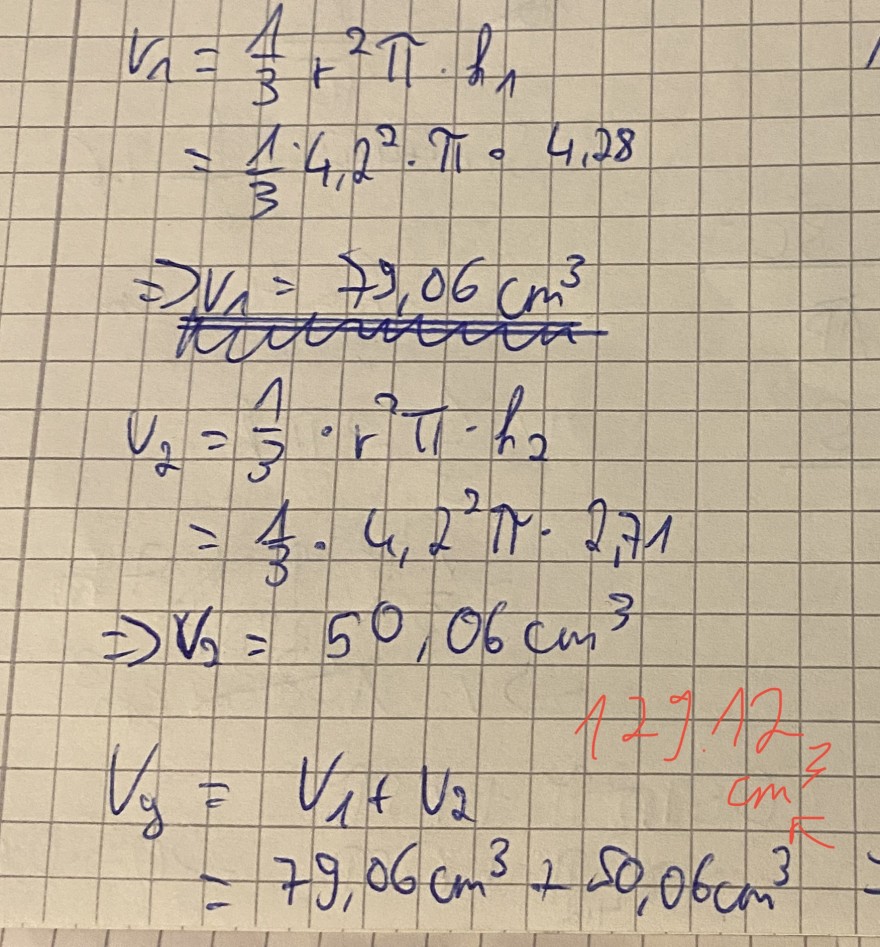 V₁ = 1/3 r²π · h₁
= 1/3 · 4,2² · π · 4,28
⇒ V₁ = 79,06 cm³
V₂ = 1/3 · r²π · h₂
= 1/3 · 4,2²π · 2,71
⇒ V₂ = 50,06 cm³
129.12
cm³
Vg = V₁ + V₂
= 79,06 cm³ + 50,06 cm³ =